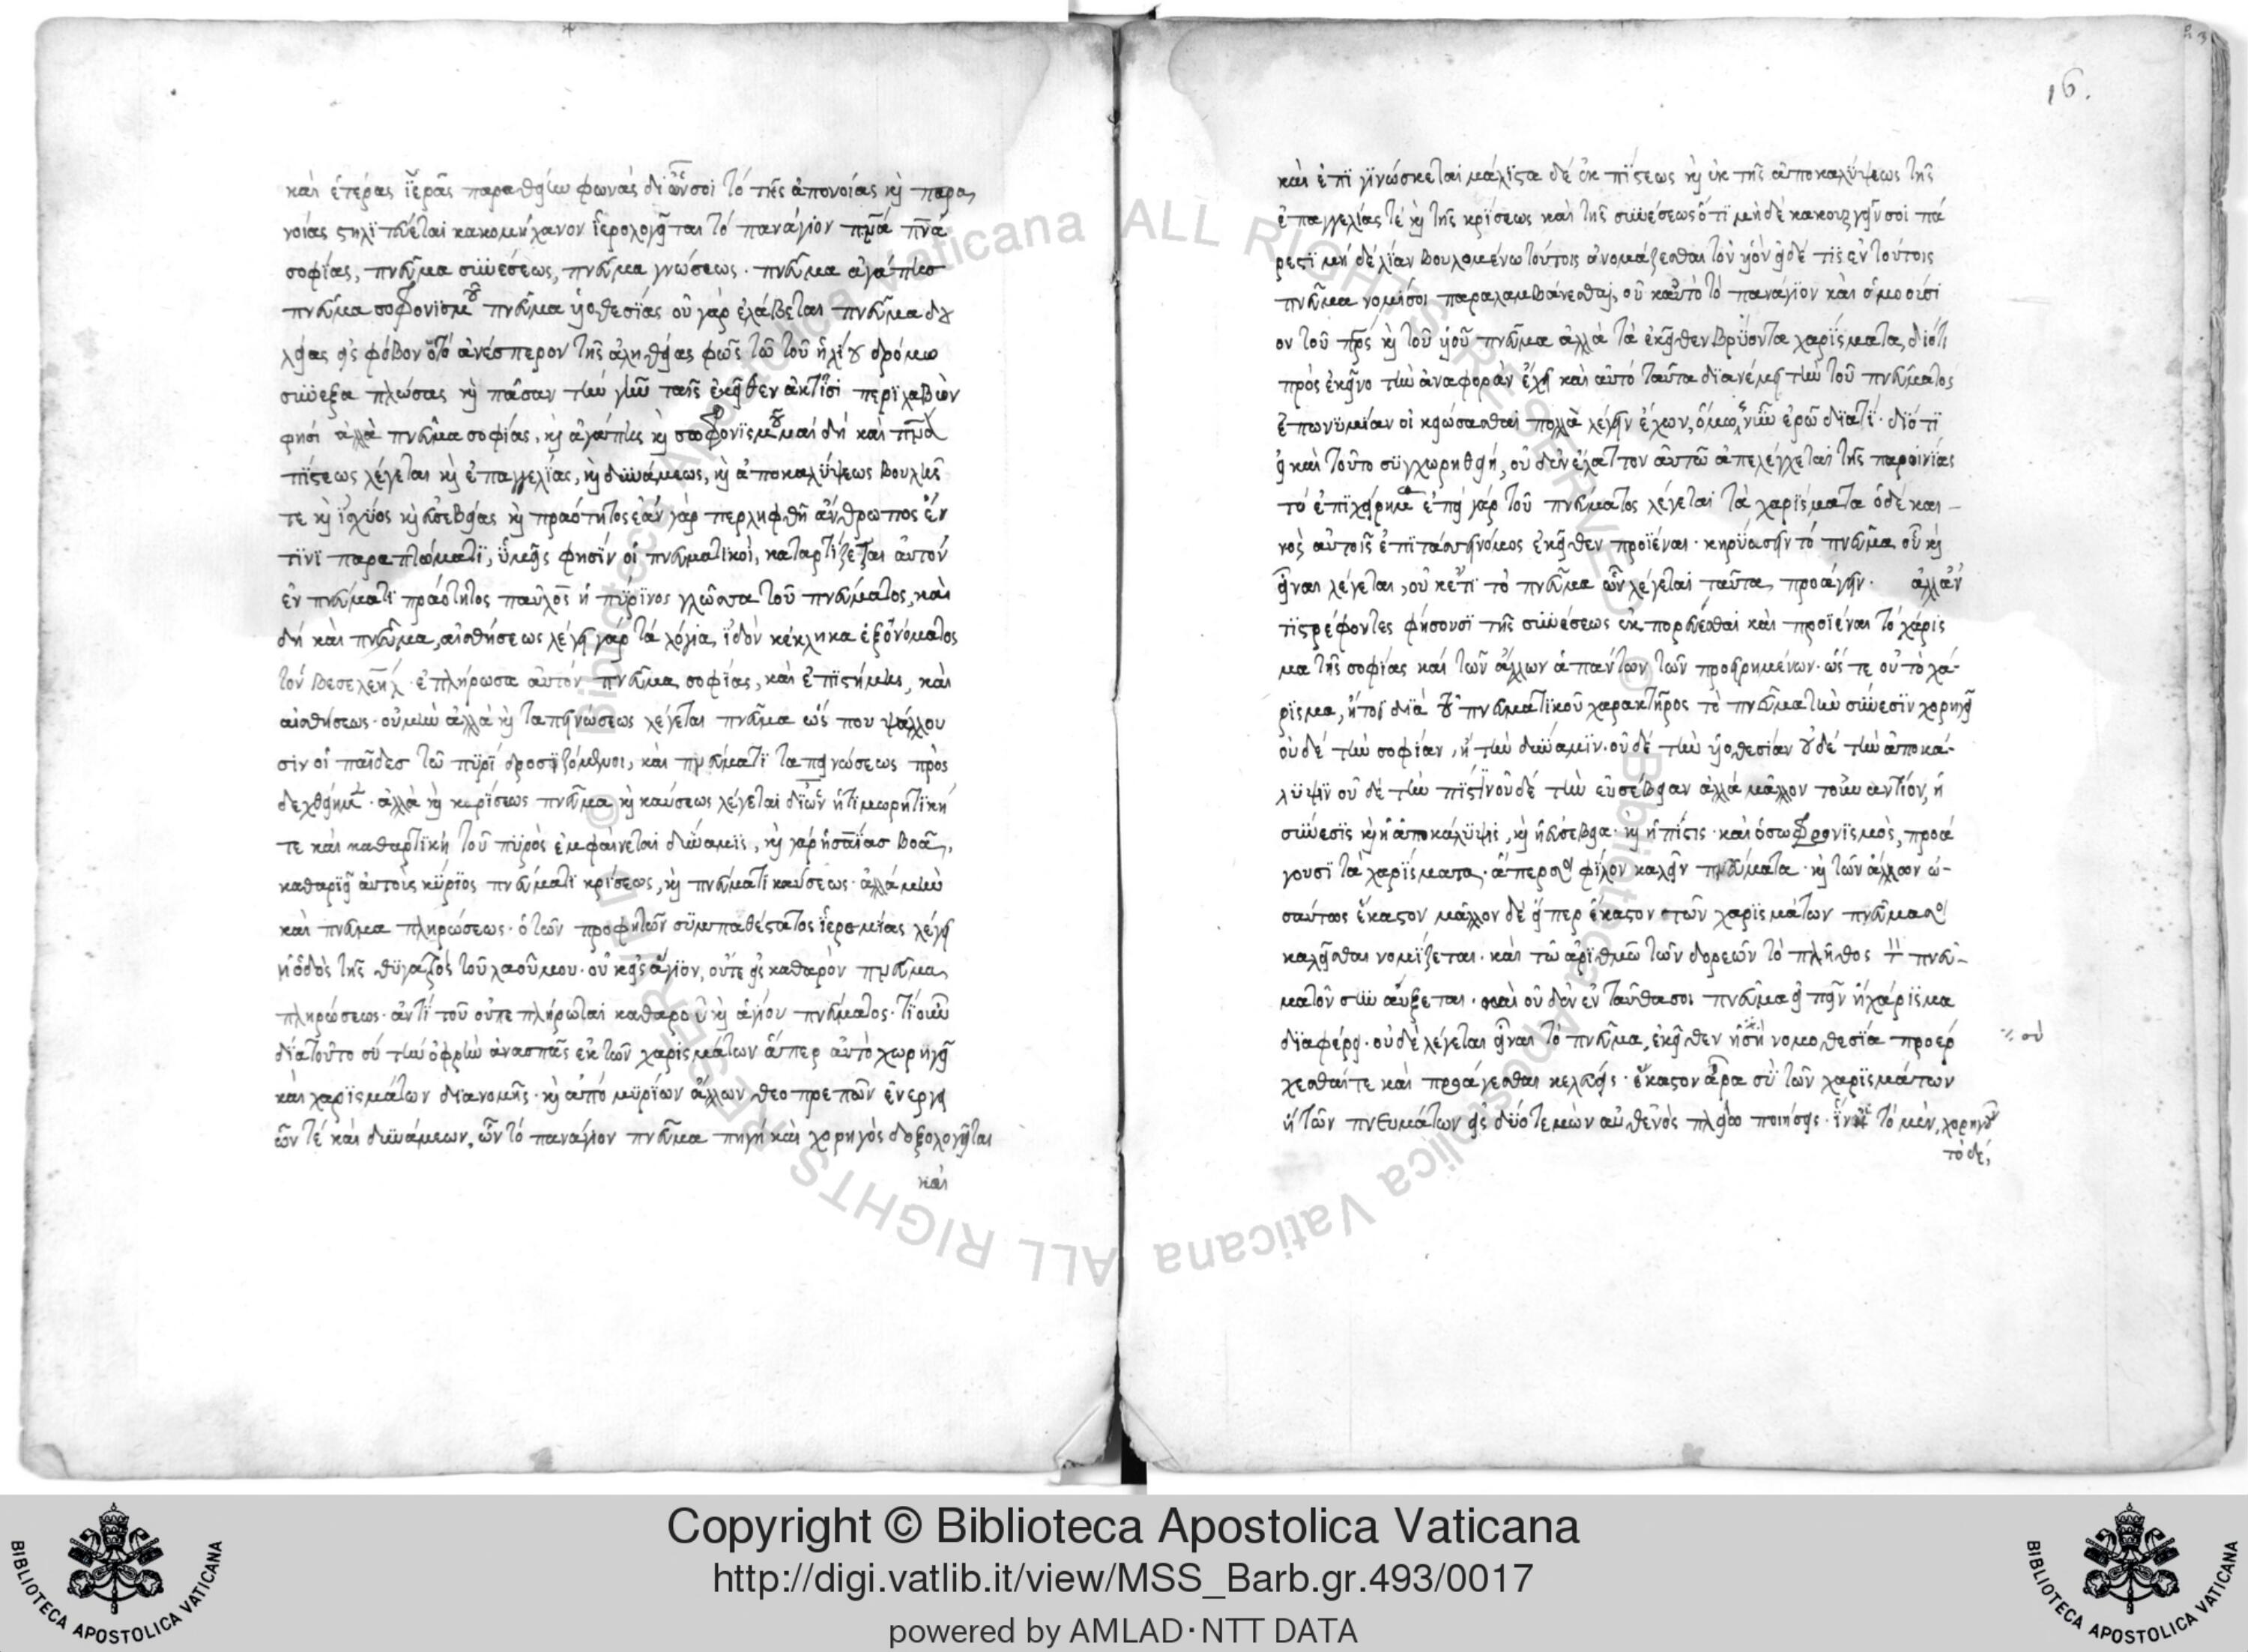 καὶ ἑτέρας ἱερᾶς παραθείην φωνάς δι ὧν σοι τό τῆς ἀπονοίας κὶ παρα
νοίας στηλιτεύεται κακομήχανον ἱερολογεῖται τό πανάγιον πνᾶ πνᾶ
σοφίας, πνεῦμα συνέσεως, πνεῦμα γνώσεως. πνεῦμα ἀγάπης
πνεῦμα σοφρονισμοῦ πνεῦμα υἱοθεσίας οὐ γάρ ἐλάβεται πνεῦμα δου
λείας εἰς φόβον ὅτό ἀνέσπερον τῆς ἀληθείας φῶς τῶ τοῦ ἡλίου δρόμω
συνεξαπλώσας κὶ πᾶσαν τήν γῆν ταῖς ἐκεῖθεν ἀκτῖσι περιλαβὼν
φησί ἀλλὰ πνεῦμα σοφίας, κὶ ἀγάπης κὶ σωφρονισμοῦ ναί δή καὶ πνᾶ
πίστεως λέγεται κὶ ἐπαγγελίας, κὶ δυνάμεως, κὶ ἀποκαλύψεως βουλῆς
τε κὶ ἰσχύος κὶ εὐσεβείας κὶ πραότητος ἐάν γάρ περληφθῆ ἄνθρωπος ἔν
τινι παραπτώματι, ὑμεῖς φησίν οἱ πνευματικοὶ, καταρτίζεται αὐτόν
ἐν πνεύματι πραότητος παῦλος ἡ πύρινος γλῶσσα τοῦ πνεύματος, καὶ
δή καὶ πνεῦμα, αἰσθήσεως λέγει γάρ τά λόγια, ἰδοὺ κέκληκα ἐξονόματος
τόν βεσελεήλ. ἐπλήρωσα αὐτόν πνεῦμα σοφίας, καὶ ἐπιστήμης, καὶ
αἰσθήσεως. οὐμὴν ἀλλά κὶ ταπεινώσεως λέγεται πνεῦμα ὥς που ψάλλου
σιν οἱ παῖδες τῶ πυρὶ δροσιζόμενοι, καὶ πνεύματι ταπεινώσεως πρὸς
δεχθείημεν. ἀλλὰ κὶ κρίσεως πνεῦμα κὶ καύσεως λέγεται δι ὧν ἡ τιμωρητική
τε καὶ καθαρτική τοῦ πυρὸς ἐμφαίνεται δύναμις, κὶ γάρ ἡσαΐας βοᾶ,
καθαριεῖ αὐτοὺς κύριος πνεύματι κρίσεως, κὶ πνεύματι καύσεως. ἀλλά μὴν
καὶ πνεῦμα πληρώσεως. ὁ τῶν προφητῶν συμπαθέστατος ἱερεμίας λέγει
ἡ ὁδὸς τῆς θυγατρός τοῦ λαοῦ μου. οὐκ εἰς ἅγιον, οὔτε εἰς καθαρὸν πνεῦμα
πληρώσεως. ἀντί τοῦ οὔπε πλήρωται καθαροῦ κὶ ἁγίου πνεύματος. τί οὖν
διὰ τοῦτο σύ τήν ὀφρὺν ἀνασπᾶς ἐκ τῶν χαρισμάτων ἅπερ αὐτὸ χωρηγεῖ
καὶ χαρισμάτων διανομῆς. κὶ ἀπό μυρίων ἄλλων θεοπρεπῶν ἐνεργει
ῶν τέ καὶ δυνάμεων, ὧν τό πανάγιον πνεῦμα πηγή καὶ χορηγὸς δοξολογεῖται
καὶ
16.
καὶ ἐπιγινώσκεται μάλιστα δέ ἐκ πίστεως κὶ ἐκ τῆς ἀποκαλύψεως τῆς
ἐπαγγελίας τέ κὶ τῆς κρίσεως καὶ τῆς συνέσεως ὅτι μὴδέ κακουργεῖν σοι πά
ρεστι μή δέ λίαν βουλομένω τούτοις ὀνομάζεσθαι τὸν υἱόν εἰ δέ τις ἐν τούτοις
πνεῦμα νομίσοι παραλαμβάνεσθαι, οὐκ αὐτὸ τὸ πανάγιον καὶ ὁμοούσι
ον τοῦ πρς κὶ τοῦ υἱοῦ πνεῦμα ἀλλὰ τὰ ἐκεῖθεν βρύοντα χαρίσματα, διότι
πρὸς ἐκεῖνο τὴν ἀναφορὰν ἔχει καὶ αὐτό ταῦτα διανέμει τὴν τοῦ πνεύματος
ἐπωνυμίαν οἰκειώσασθαι πολλὰ λέγειν ἔχων, ὅμως νῦν ἐρῶ διατί. διότι
εἰ καὶ τοῦτο συγχωρηθείη, οὐδὲν ἔλαττον αὐτῶ ἀπελέγχεται τῆς παροινίας
τό ἐπιχείρημα ἐπεί γάρ τοῦ πνεύματος λέγεται τὰ χαρίσματα ὁ δέ και
νὸς αὐτοῖς ἐπιτάσσει νόμος ἐκεῖθεν προϊέναι. κηρύσσειν τό πνεῦμα οὗ κὶ
εἶναι λέγεται, οὐκέτι τὸ πνεῦμα ὧν λέγεται ταῦτα προάγειν. ἀλλ ἀν
τιστρέφοντες φήσουσι τῆς συνέσεως ἐκπορεύεσθαι καὶ προϊέναι τὸ χάρισ
μα τῆς σοφίας καί τῶν ἄλλων ἁπάντων τῶν προειρημένων. ὥς τε οὐ τὸ χά-
ρισμα, ἤτοι διά τοῦ πνευματικοῦ χαρακτῆρος τὸ πνεῦμα τὴν σύνεσιν χορηγεῖ
οὐδέ τὴν σοφίαν, ἢ τὴν δύναμιν. οὐδέ τὴν υἱοθεσίαν οὐδέ τὴν ἀποκά-
λυψιν οὐδέ τὴν πίστιν οὐδέ τὴν εὐσέβειαν ἀλλά μᾶλλον τοὐναντίον, ἡ
σύνεσις κὶ ἡ ἀποκάλυψις, κὶ ἡ εὐσέβεια. κὶ ἡ πίστις. καὶ ὁ σωφρονισμὸς, προά
γουσι τὰ χαρίσματα. ἅπερ σοι φίλον καλεῖν πνεύματα. κὶ τῶν ἄλλων ὡ-
σαύτως ἕκαστον μᾶλλον δέ εἴπερ ἕκαστον τῶν χαρισμάτων πνεῦμα σοι
καλεῖσθαι νομίζεται. καὶ τῶ ἀριθμῶ τῶν δορεῶν τὸ πλῆθος τῶν πνευ-
ματῶν συναύξεται. καὶ οὐδὲν ἐνταῦθα σοι πνεῦμα εἰπεῖν ἢ χάρισμα
διαφέρει. οὐ δέ λέγεται εἶναι τὸ πνεῦμα, ἐκεῖθεν ἡ σὴ νομοθεσία προέρ
χεσθαίτε καὶ προάγεσθαι κελεύεις. ἕκαστον ἄρα σὺ τῶν χαρισμάτων
ἢ τῶν πνευμάτων εἰς δύο τεμὼν οὐθενὸς πλείω ποιήσεις. ἵνα τὸ μὲν, χορηγοῦν
οὐ
τὸ δέ,
Copyright © Biblioteca Apostolica Vaticana
http://digi.vatlib.it/view/MSS_Barb.gr.493/0017
powered by AMLAD·NTT DATA
BIBLIOTECA APOSTOLICA VATICANA
BIBLIOTECA APOSTOLICA VATICANA